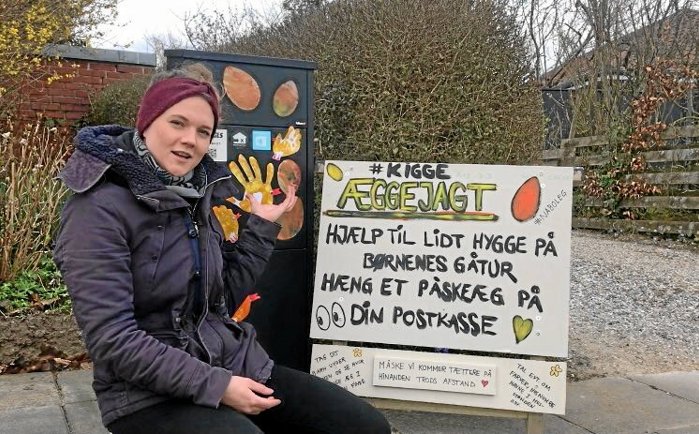 #KIGGE
ÆGGEJAGT
#NABOLEG
HJÆLP TIL LIDT HYGGE PÅ
BØRNENES GÅTUR
HÆNG ET PÅSKEÆG PÅ
DIN POSTKASSE
TAG DIT
BARN VED
MÅSKE VI KOMMER TÆTTERE PÅ
HINANDEN TRODS AFSTAND
TAL EVT OM